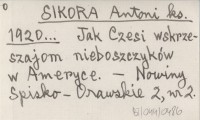 0
SIKORA Antoni ks.
1920... Jak Czesi wskrze-
szajom nieboszczyków
w Ameryce. — Nowiny
Spisko-Orawskie 2, nr 2.